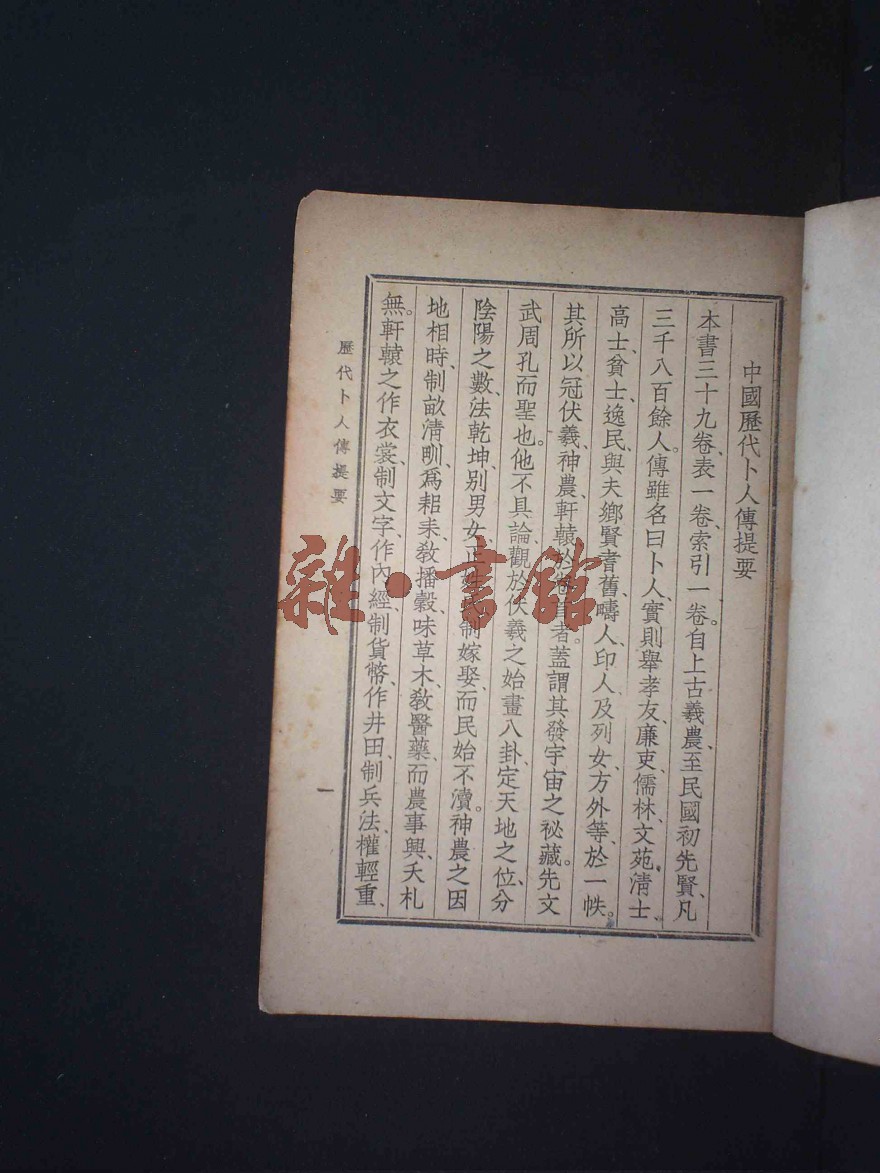 中國歷代卜人傳提要
本書三十九卷、表一卷、索引一卷。自上古羲農、至民國初先賢、凡
三千八百餘人。傳雖名曰卜人、實則舉孝友、廉吏、儒林、文苑、清士、
高士、貧士、逸民、與夫鄉賢、耆舊、疇人、印人、及列女、方外等、於一帙。
其所以冠伏羲、神農、軒轅於卷首者。蓋謂其發宇宙之祕藏。先文
武周孔而聖也。他不具論、觀於伏羲之始畫八卦、定天地之位、分
陰陽之數、法乾坤、別男女、正姓氏、制嫁娶、而民始不瀆。神農之因
地相時、制畝清甽、爲耜耒、敎播穀、味草木、敎醫藥、而農事興、夭札
無。軒轅之作衣裳、制文字、作內經、制貨幣、作井田、制兵法、權輕重、
歷代卜人傳提要
一
雜·書館